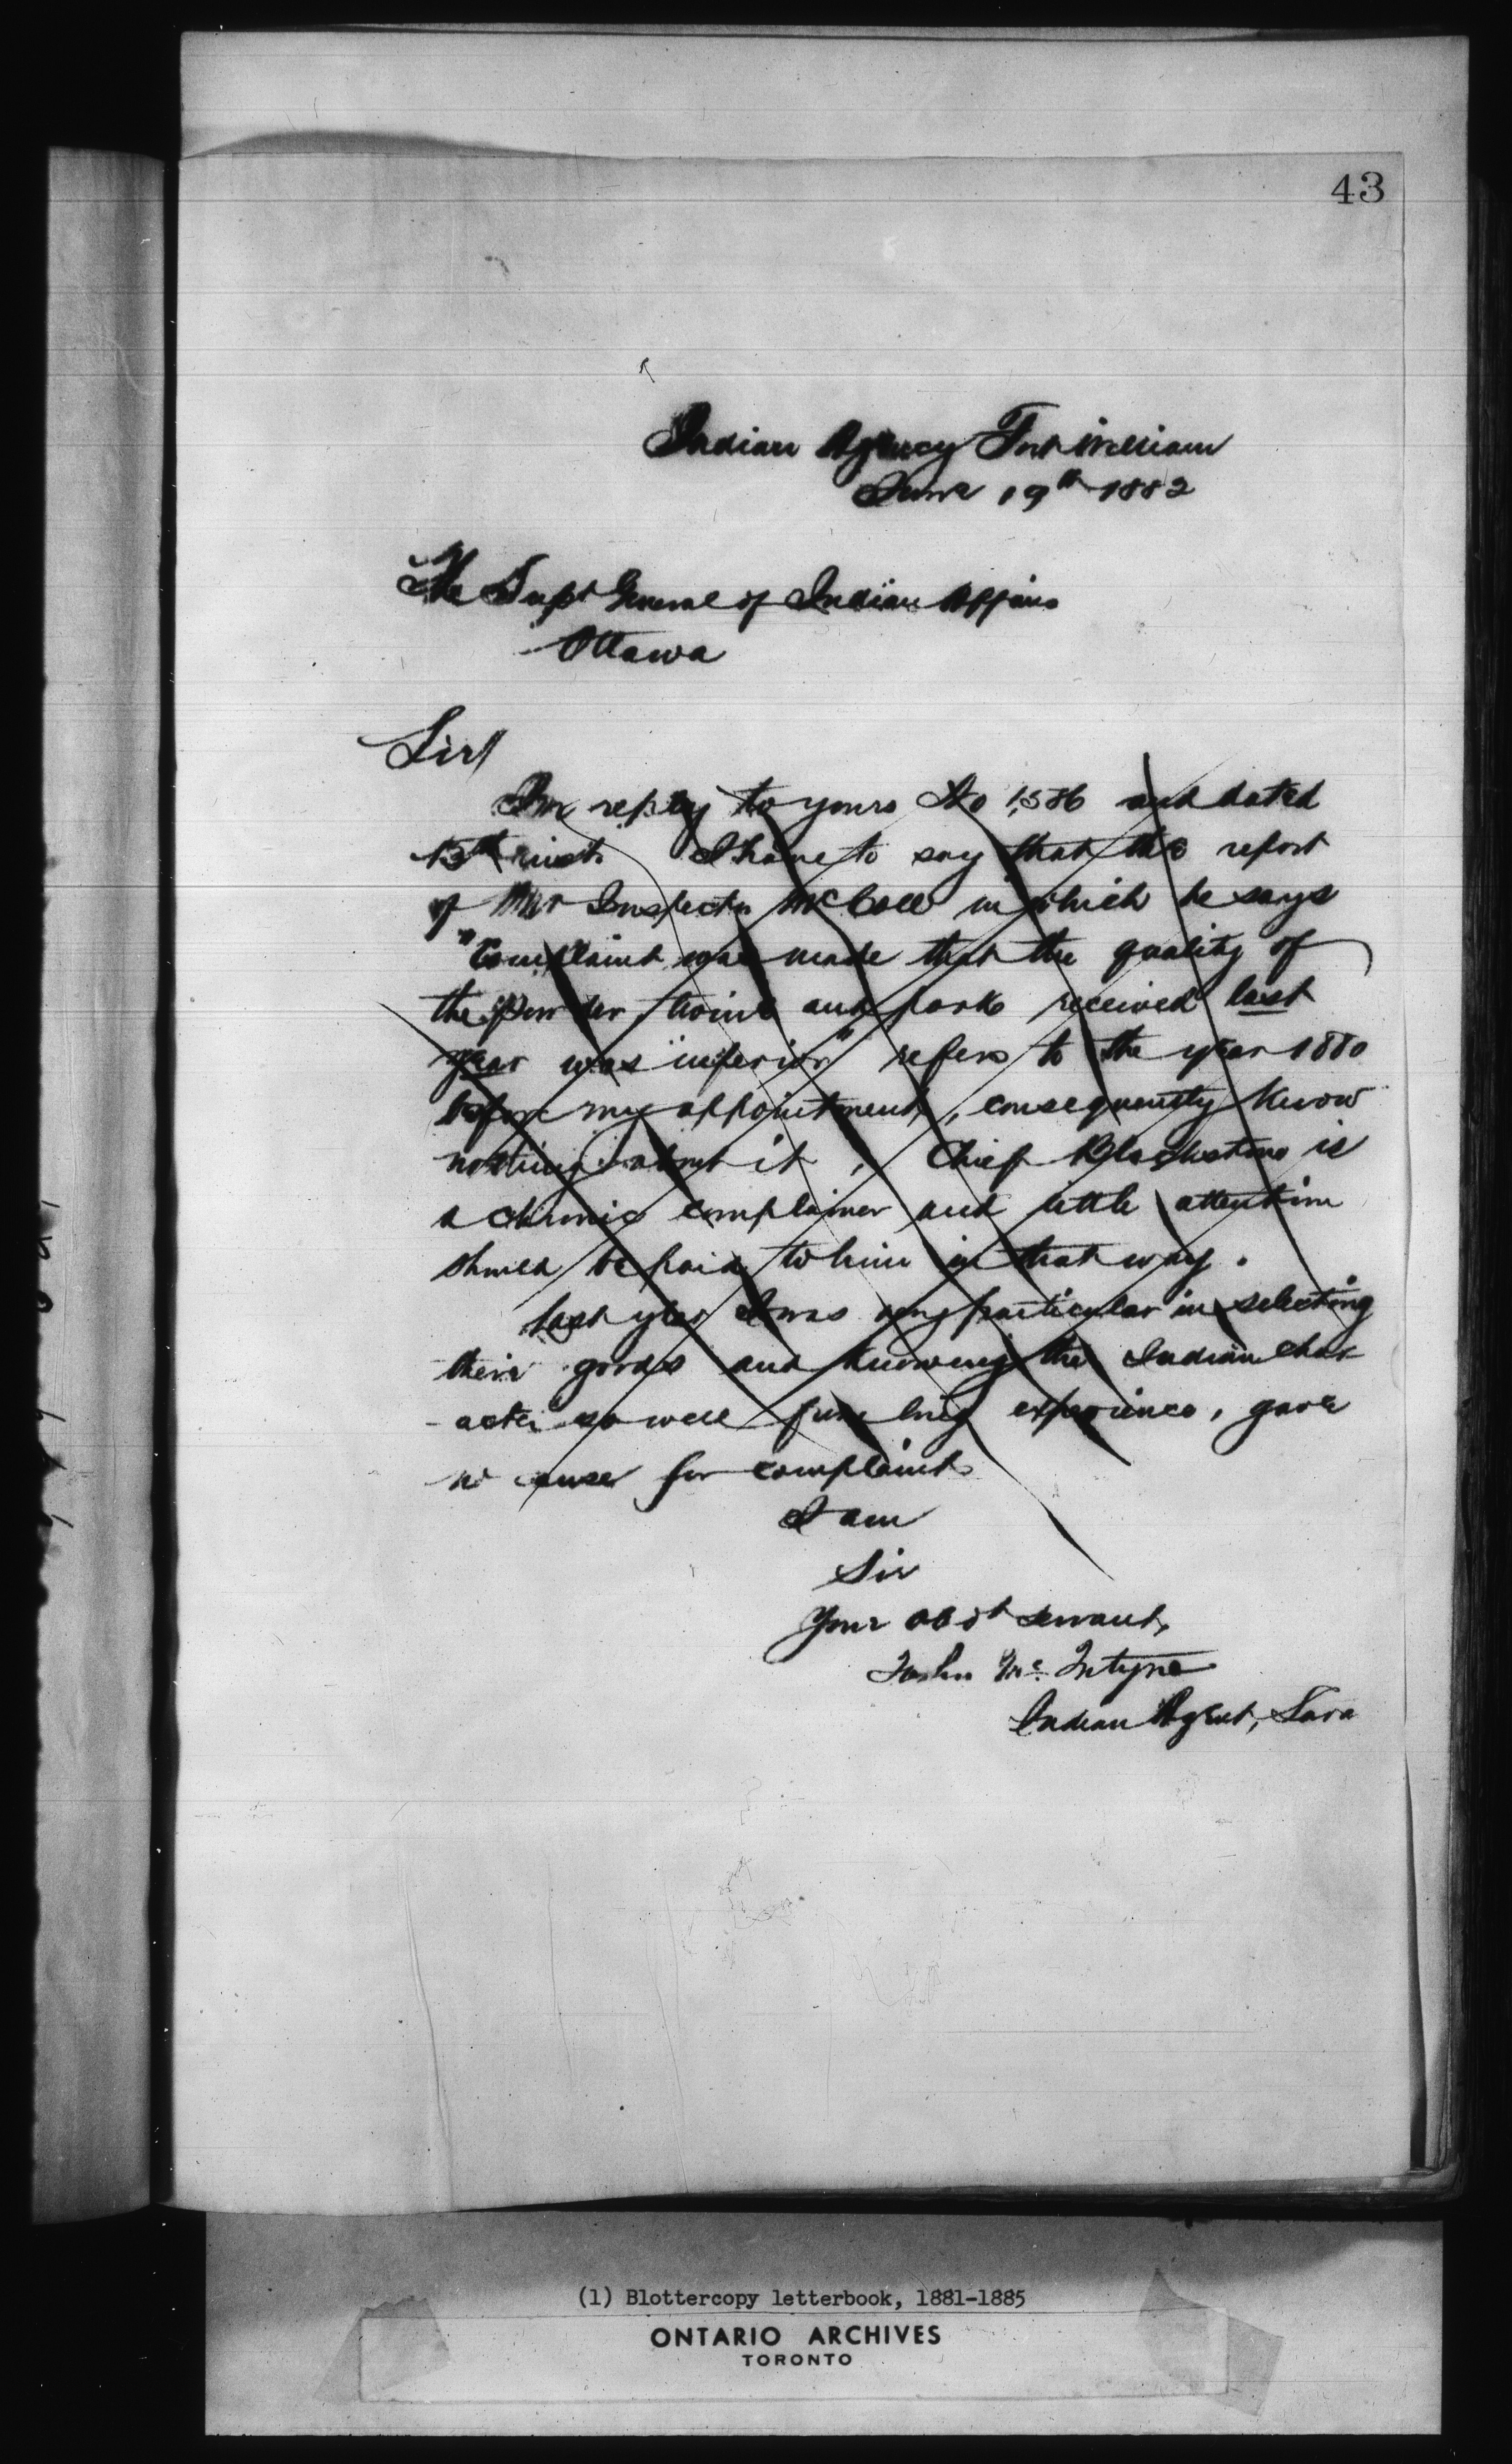 43
Indian Agency Fort William
June 19th 1882
The Supt General of Indian Affairs
Ottawa
Sir
In reply to yours No 1,586 and dated
13th inst. I have to say that the report
of Mr Inspector McColl in which he says
"Complaint was made that the quality of
the powder, twine and pork received last
year was inferior" refers to the year 1880
before my appointment, consequently know
nothing about it, Chief Blackstone is
a chronic complainer and little attention
should be paid to him in that way.
Last year I was very particular in selecting
their goods and knowing the Indian char
-acter so well from long experience, gave
no cause for complaint
I am
Sir
Your obdt servant,
John Mc. Intyre
Indian Agent, Sava
(1) Blottercopy letterbook, 1881-1885
ONTARIO ARCHIVES
TORONTO